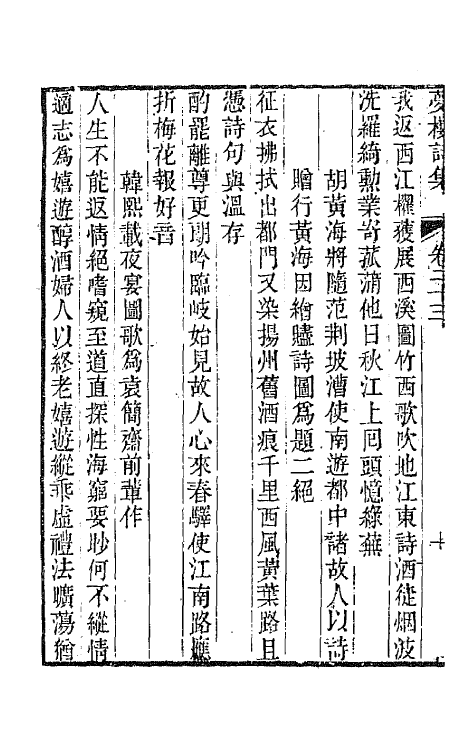 夢樓詩集　卷二十三　十
我返西江櫂獲展西溪圖竹西歌吹地江東詩酒徒烟波
洗羅綺勲業寄菰蒲他日秋江上囘頭憶綠蕪
胡黃海將隨范荆坡漕使南遊都中諸故人以詩
贈行黃海因繪贐詩圖爲題二絕
征衣拂拭出都門又染揚州舊酒痕千里西風黃葉路且
憑詩句與溫存
酌罷離尊更朗吟臨岐始見故人心來春驛使江南路應
折梅花報好音
韓熙載夜宴圖歌爲袁簡齋前輩作
人生不能返情絕嗜窺至道直探性海窮要眇何不縱情
適志爲嬉遊醇酒婦人以終老嬉遊縱乖虛禮法曠蕩猶